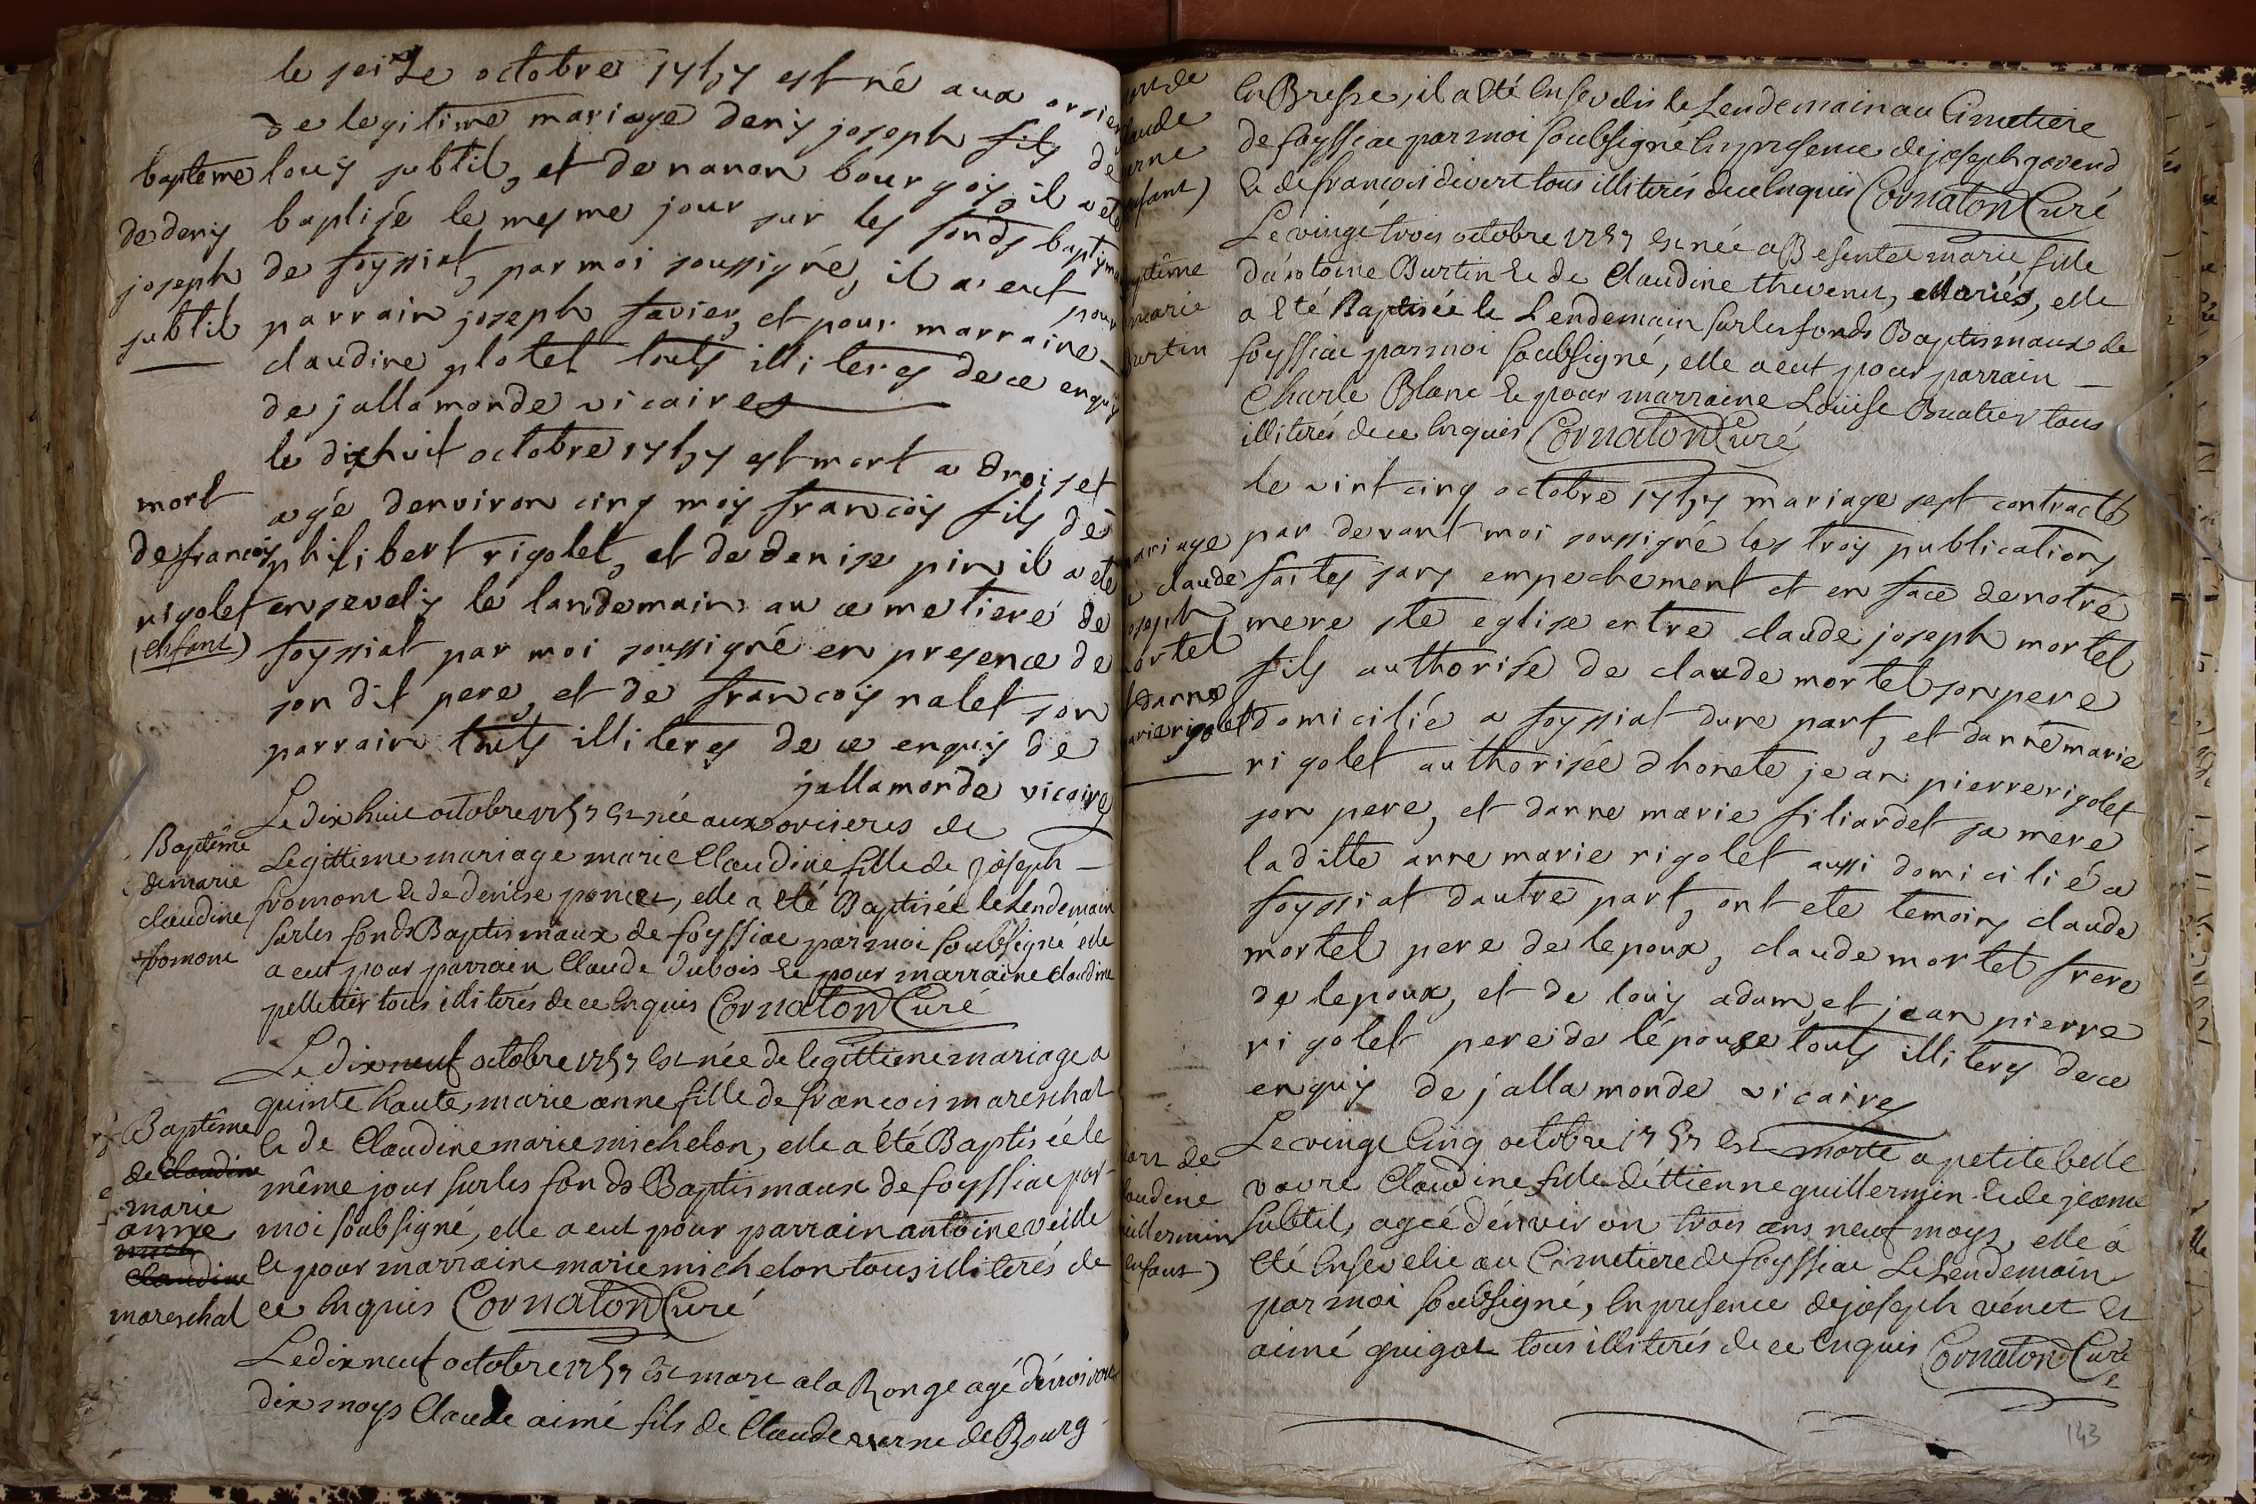 le seize octobre 1757 est né aux orsier
de legitime mariage denis joseph fils de
baptême louis subtil, et de nanon bourgois, il a eté
de denis baptisée le mesme jour sur les fonds baptisma
joseph de foyssiat, par moi soussigné, il a eut pour
subtil parrain joseph favier, et pour marraine
claudine plotet touts illiterés de ce enquis
de jallamonde vicaires
le dixhuit octobre 1757 est mort a droiset
mort agé denviron cinq mois francois fils de
de francois philibert rigolet, et de denise pin il a eté
rigolet ensevelis le landemain au cemetiere de
(enfant) foyssiat par moi soussigné en presence de
son dit pere, et de francois nalet son
parrain touts illiterés de ce enquis de
jallamonde vicaires
Le dix huit octobre 1757 est née aux orcieres de
Baptême Legittime mariage marie Claudine fille de joseph
de marie fromont et de denise poncet, elle a eté Baptisée le Lendemain
claudine sur les fonds Baptismaux de foyssiat par moi soubsigné elle
fromont a eut pour parrain Claude dubois et pour marraine claudine
pelletier tous illiterés de ce enquis Cornaton Curé
Le dix neuf octobre 1757 est née de legittime mariage a
quinte haute, marie anne fille de francois mareschal
Baptême et de Claudine marie michelon, elle a été Baptisée le
de Claudine même jour sur les fonds Baptismaux de foyssiat par
marie
anne moi soubsigné, elle a eut pour parrain antoine veille
Claudine et pour marraine marie michelon tous illiterés de
mareschal ce enquis Cornaton Curé
Le dix neuf octobre 1757 est mort a la Ronge agé d'environ
dix moys Claude aimé fils de Claude verne de Bourg
en Bresse, il a eté ensevelis le Lendemain au Cimetiere
de foyssiat par moi soubsigné en presence de joseph
et de francois divert tous illiterés de ce enquis Cornaton Curé
enfant)
Le vingt trois octobre 1757 est née a Besentet marie fille
d'antoine Burtin et de Claudine thevenet, Mariés, elle
marie a été Baptisée le Lendemain sur les fonds Baptismaux de
burtin foyssiat par moi soubsigné, elle a eut pour parrain
Charle Blanc et pour marraine Loüise Buatier tous
illiterés de ce enquis Cornaton Curé
le vint cinq octobre 1757 mariage sest contracté
mariage par devant moi soussigné les trois publications
claude faites sans empechement et en face de notre
joseph mere ste eglise entre claude joseph mortel
mortel fils authorisé de claude mortel son pere
marie rigolet domicilié a foyssiat dune part, et danne marie
rigolet authorisée dhonete jean pierre rigolet
son pere, et danne marie filiardet sa mere
laditte anne marie rigolet aussi domicilié a
foyssiat dautre part, ont eté temoins claude
mortel pere de lepoux, claude mortel frere
de lepoux, et de louis adam, et jean pierre
rigolet pere de lépouse touts illiterés de ce
enquis de jallamonde vicaires
Le vingt Cinq octobre 1757 est morte a petite belle
mort de vavre Claudine fille d'éttienne guillermin et de jeanne
claudine subtil, agée d'environ trois ans neuf moys, elle à
guillermin été ensevelie au Cimetiere de foyssiat Le Lendemain
enfant) par moi soubsigné, en presence de joseph vénet et
aimé guigot tous illiterés de ce enquis Cornaton Curé
143